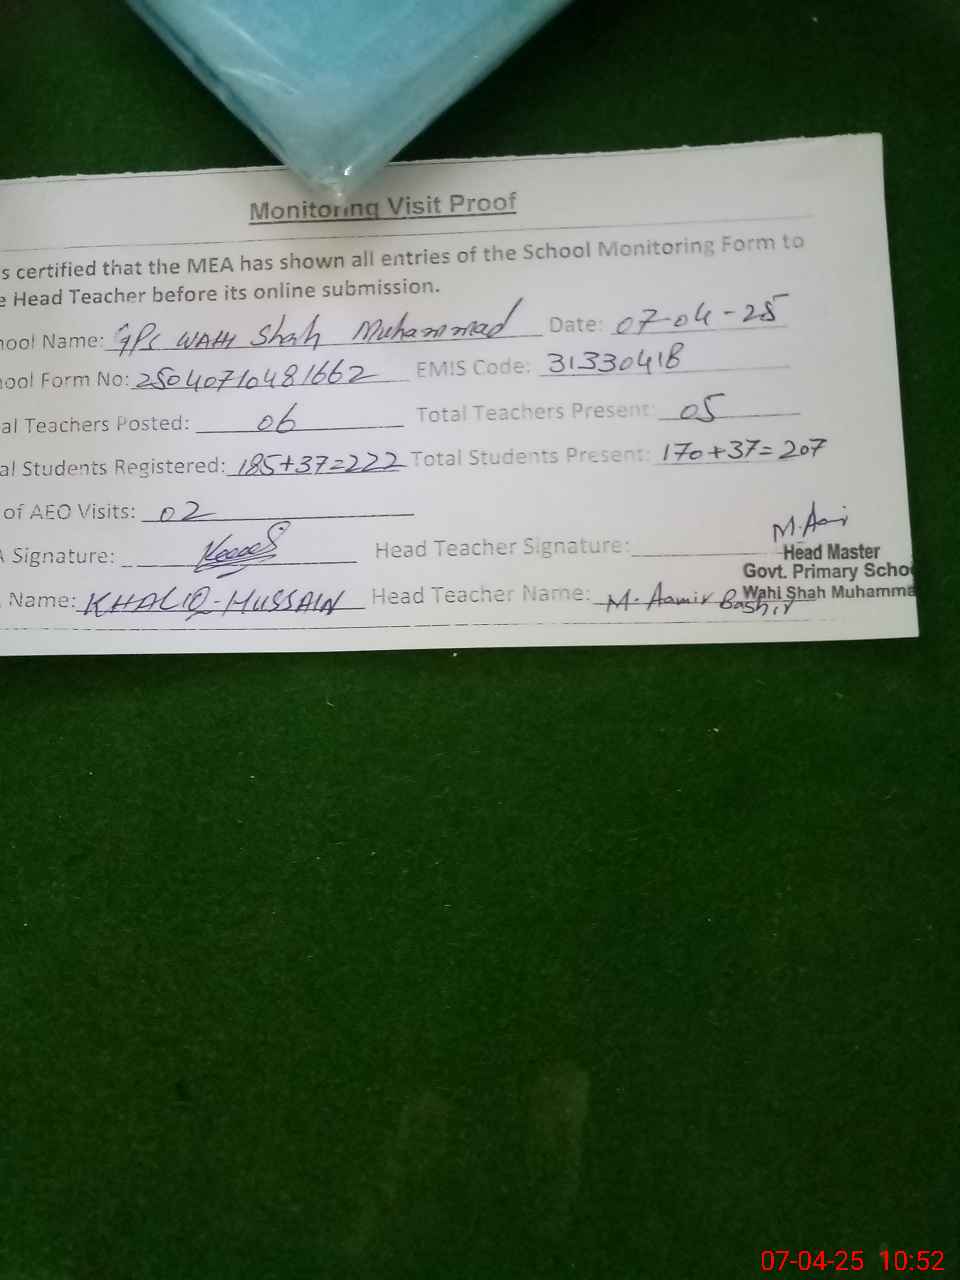 Monitoring Visit Proof
s certified that the MEA has shown all entries of the School Monitoring Form to
e Head Teacher before its online submission.
hool Name: GPS WAHI Shah Muhammad Date: 07-04-25
hool Form No: 25040710481662 EMIS Code: 31330418
al Teachers Posted: 06 Total Teachers Present: 05
al Students Registered: 185+37=222 Total Students Present: 170+37=207
of AEO Visits: 02
A Signature: Head Teacher Signature: M.Aami
Head Master
Govt. Primary Schoo
Wahi Shah Muhamma
Name: KHALIQ-HUSSAIN Head Teacher Name: M. Aamir Bashir
07-04-25 10:52